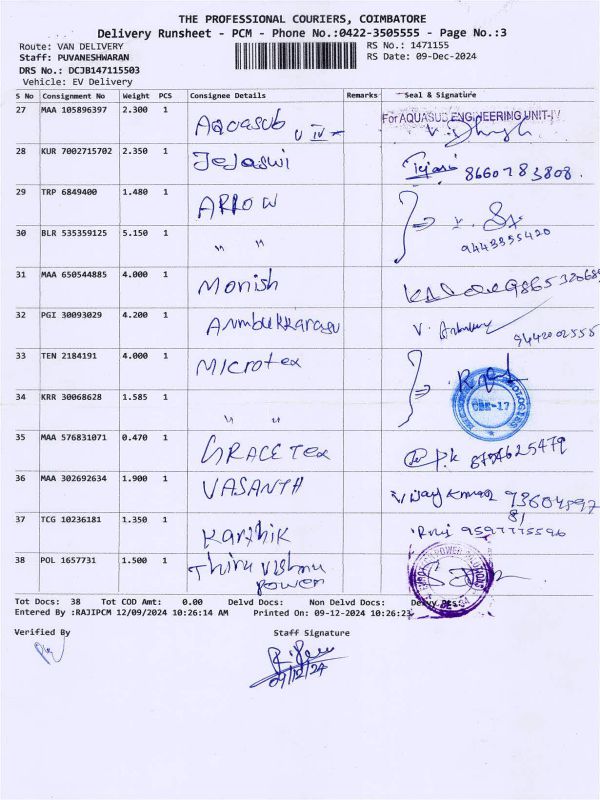 THE PROFESSIONAL COURIERS, COIMBATORE
Delivery Runsheet - PCM - Phone No.:0422-3505555 - Page No.:3
Route: VAN DELIVERY
RS No.: 1471155
Staff: PUVANESHWARAN
RS Date: 09-Dec-2024
DRS No.: DCJB147115503
Vehicle: EV Delivery
S No Consignment No Weight PCS Consignee Details Remarks Seal & Signature
27 MAA 105896397 2.300 1 Aquasub U IV For AQUASUB ENGINEERING UNIT-IV
28 KUR 7002715702 2.350 1 Tejaswi 8660783808.
29 TRP 6849400 1.480 1 ARROW
30 BLR 535359125 5.150 1 " " 9443355420
31 MAA 650544885 4.000 1 Monish
32 PGI 30093029 4.200 1 Anmbukkarasu 9442002555
33 TEN 2184191 4.000 1 Microtex
34 KRR 30068628 1.585 1 " " CBE-17
35 MAA 576831071 0.470 1 GRACE Tex P.K
36 MAA 302692634 1.900 1 VASANTH Vijay kumar
37 TCG 10236181 1.350 1 Karthik
38 POL 1657731 1.500 1 Thiru Vishnu
power
Tot Docs: 38 Tot COD Amt: 0.00 Delvd Docs: Non Delvd Docs:
Entered By :RAJIPCM 12/09/2024 10:26:14 AM Printed On: 09-12-2024 10:26:23
Verified By Staff Signature
09/12/24